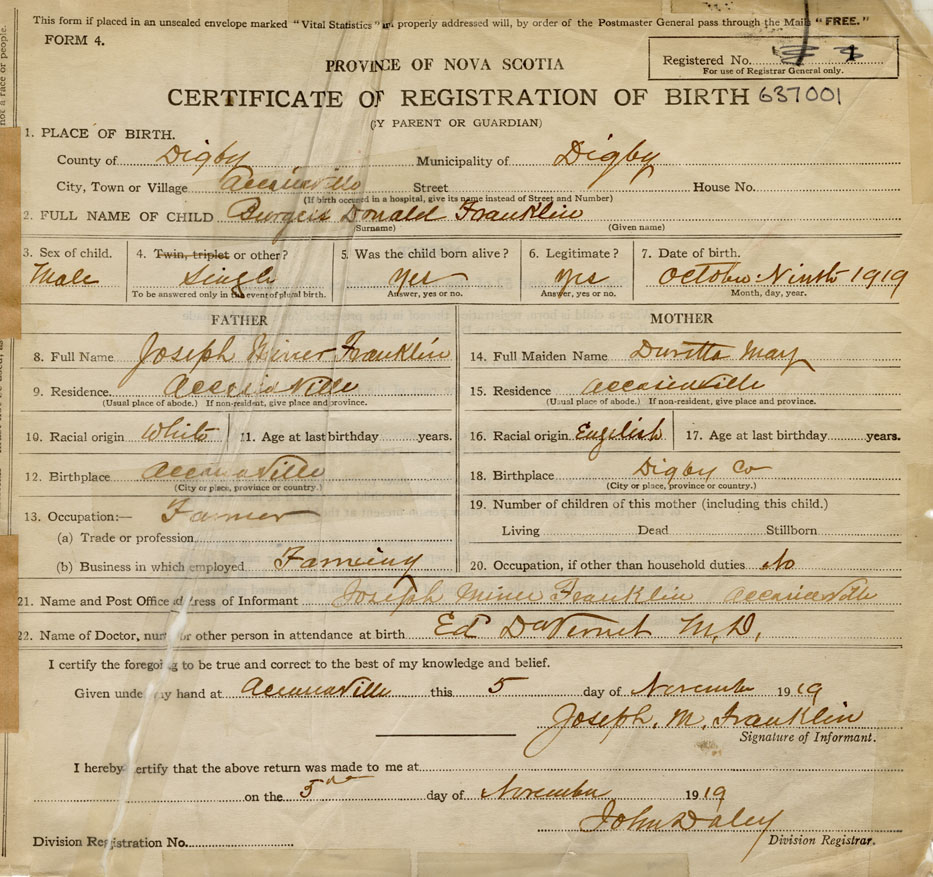 This form if placed in an unsealed envelope marked "Vital Statistics" and properly addressed will, by order of the Postmaster General pass through the Mails "FREE."
FORM 4.
Registered No. 1
For use of Registrar General only.
PROVINCE OF NOVA SCOTIA
CERTIFICATE OF REGISTRATION OF BIRTH 637001
(BY PARENT OR GUARDIAN)
not a race or people.
1. PLACE OF BIRTH.
County of Digby Municipality of Digby
City, Town or Village Acaciaville Street House No.
(If birth occured in a hospital, give its name instead of Street and Number)
2. FULL NAME OF CHILD Burgess Donald Franklin
(Surname) (Given name)
3. Sex of child. 4. Twin, triplet or other? 5. Was the child born alive? 6. Legitimate? 7. Date of birth.
Male Single yes yes October Ninth 1919
To be answered only in the event of plural birth. Answer, yes or no. Answer, yes or no. Month, day, year.
FATHER MOTHER
8. Full Name Joseph Miner Franklin 14. Full Maiden Name May
9. Residence Accaciaville 15. Residence Accaciaville
(Usual place of abode.) If non-resident, give place and province. (Usual place of abode.) If non-resident, give place and province.
10. Racial origin White 11. Age at last birthday years. 16. Racial origin English 17. Age at last birthday years.
12. Birthplace Accaciaville 18. Birthplace Digby Co
(City or place, province or country.) (City or place, province or country.)
13. Occupation:— Farmer 19. Number of children of this mother (including this child.)
(a) Trade or profession Living Dead Stillborn
(b) Business in which employed Farming 20. Occupation, if other than household duties No
21. Name and Post Office address of Informant Joseph Miner Franklin Accaciaville
22. Name of Doctor, nurse or other person in attendance at birth Ed DuVernet M.D.
I certify the foregoing to be true and correct to the best of my knowledge and belief.
Given under my hand at Accaciaville this 5 day of November 1919
Joseph. M. Franklin
Signature of Informant.
I hereby certify that the above return was made to me at
on the 5th day of November 1919
John Daley
Division Registration No. Division Registrar.